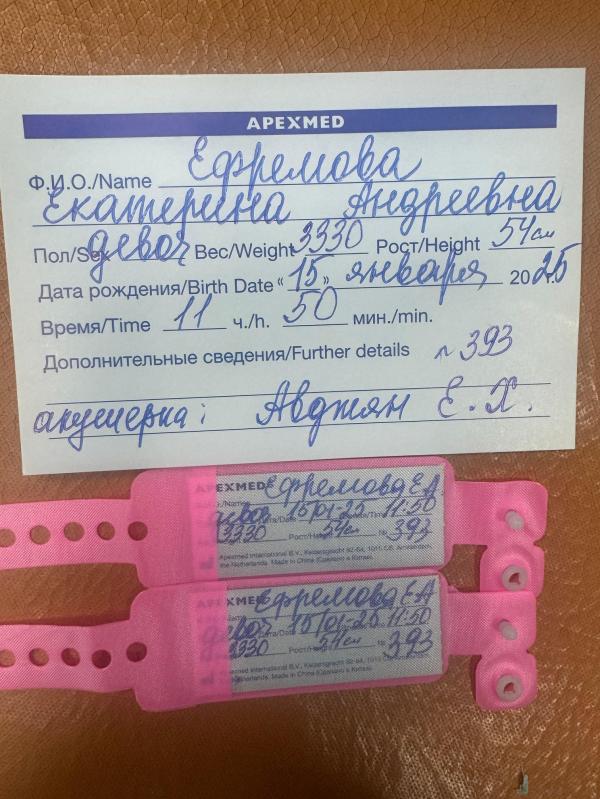 APEXMED
Ф.И.О./Name Ефремова
Екатерина Андреевна
Пол/Sex девоч Вес/Weight 3330 Рост/Height 54 см
Дата рождения/Birth Date “ 15 ” января 2025
Время/Time 11 ч./h. 50 мин./min.
Дополнительные сведения/Further details N 393
акушерка: Авджян Е. Х.
APEXMED Ефремова Е А
девоч 15/01-25 11:50
3330 Рост/ 54см № 393
Apexmed International B.V., Keizersgracht 62-64, 1015 CS, Amsterdam,
the Netherlands. Made in China (Сделано в Китае).
APEXMED Ефремова Е А
девоч 15/01-25 11:50
3330 Рост/ 54см № 393
Apexmed International B.V., Keizersgracht 62-64, 1015 CS
Netherlands. Made in China (Сделано в Китае).